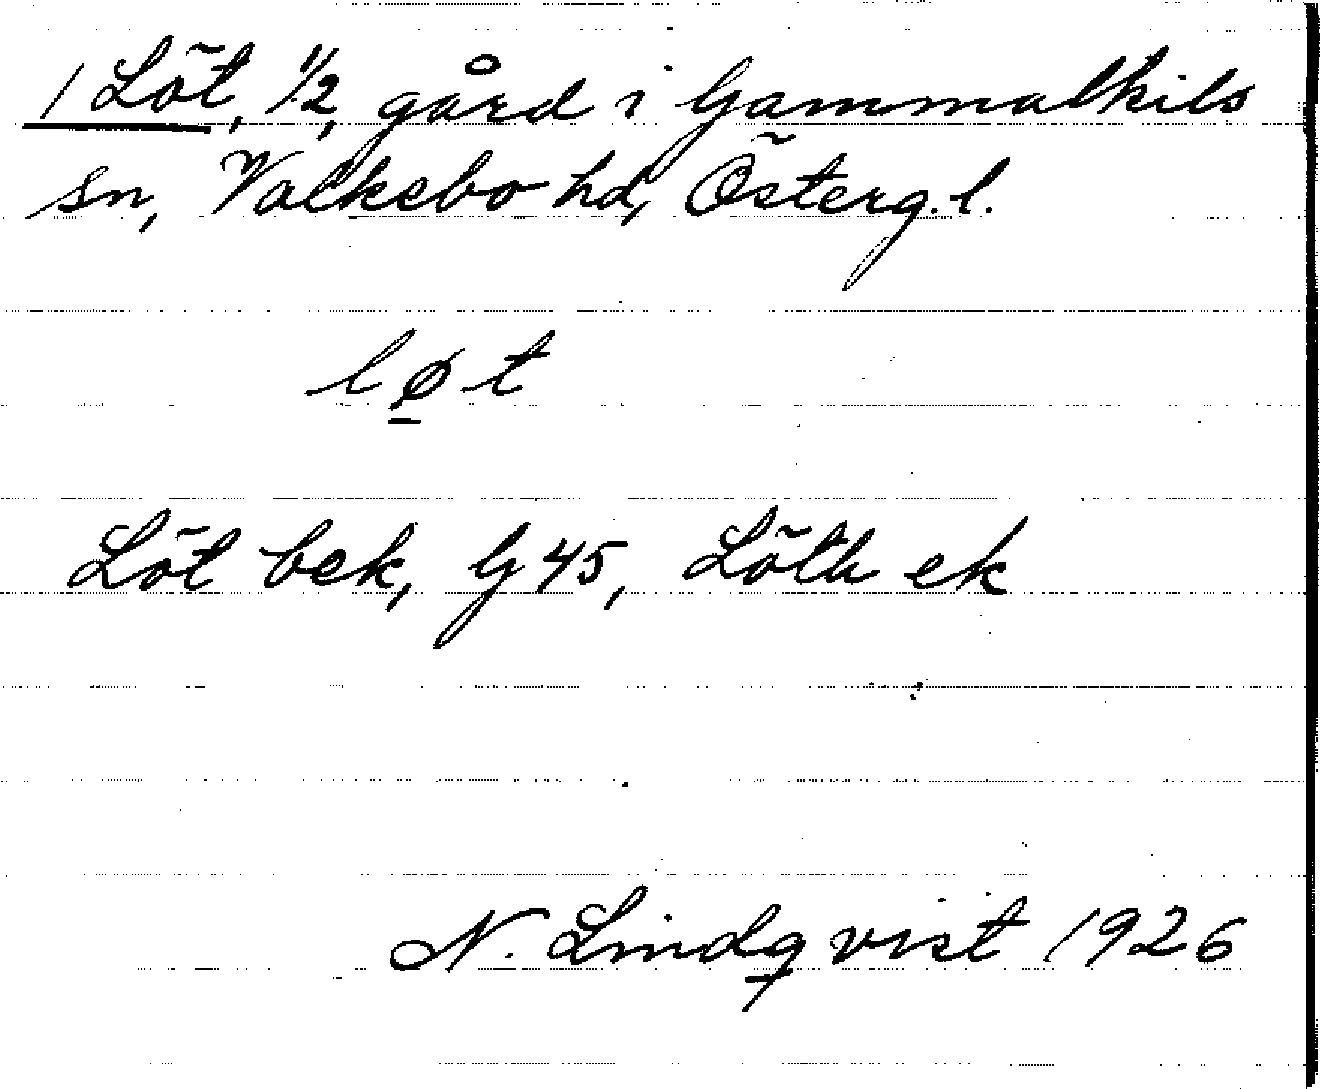 1 Löt, 1/2, gård i Gammalkils
sn, Valkebo hd, Österg. l.
løt
Löt bek, G 45, Löth ek
N. Lindqvist 1926